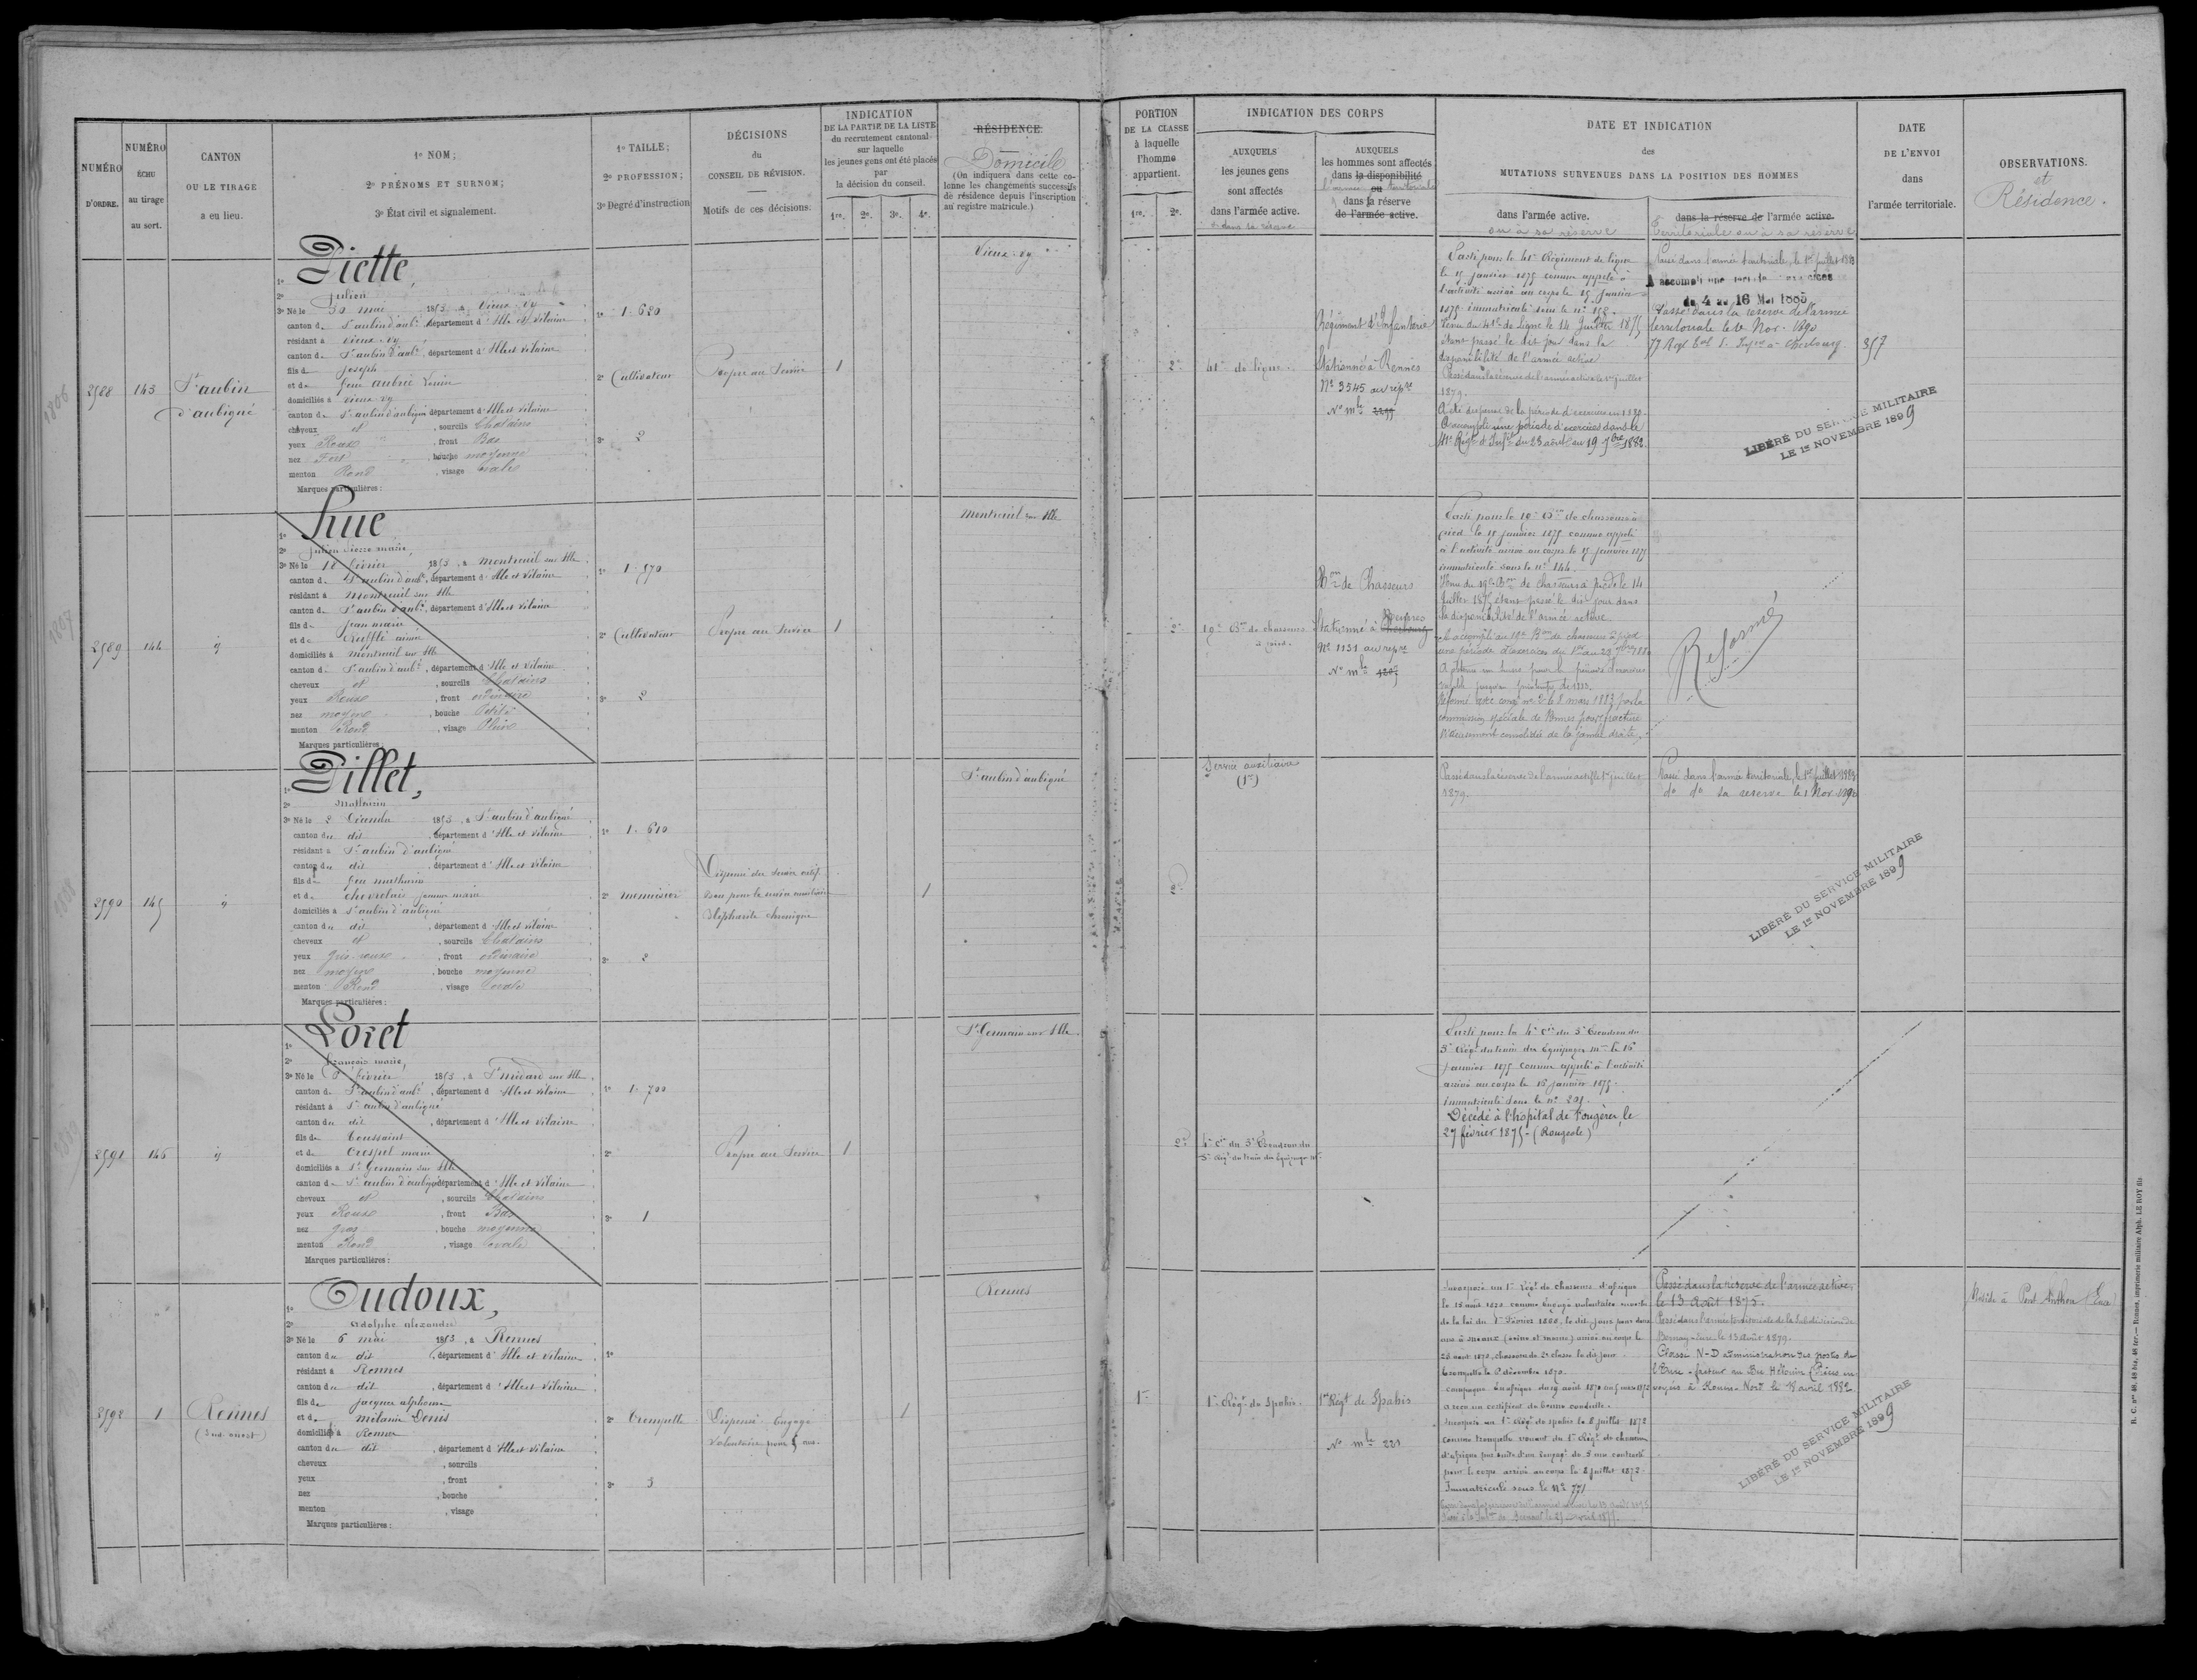 NUMÉRO
D'ORDRE.
NUMÉRO
ÉCHU
au tirage
au sort.
CANTON
OU LE TIRAGE
a eu lieu.
1º NOM;
2º PRÉNOMS ET SURNOM;
3º État civil et signalement.
1º TAILLE;
2º PROFESSION;
3º Degré d'instruction
DÉCISIONS
du
CONSEIL DE RÉVISION.
Motifs de ces décisions.
INDICATION
DE LA PARTIE DE LA LISTE
du recrutement cantonal
sur laquelle
les jeunes gens ont été placés
par
la décision du conseil.
1re. 2e. 3e. 4e.
RÉSIDENCE.
Domicile
(On indiquera dans cette co-
lonne les changements successifs
de résidence depuis l'inscription
au registre matricule.)
PORTION
DE LA CLASSE
à laquelle
l'homme
appartient.
1re. 2e.
INDICATION DES CORPS
AUXQUELS
les jeunes gens
sont affectés
dans l'armée active.
ou dans sa réserve
AUXQUELS
les hommes sont affectés
dans la disponibilité
l'armée ou territoriale
dans sa réserve
de l'armée active.
DATE ET INDICATION
des
MUTATIONS SURVENUES DANS LA POSITION DES HOMMES
dans l'armée active.
ou à sa réserve
dans la réserve de l'armée active.
Territoriale ou à sa réserve
DATE
DE L'ENVOI
dans
l'armée territoriale.
OBSERVATIONS.
et
Résidence.
1806
2588 143 St aubin
d'aubigné
1º Piette,
2º Julien
3º Né le 30 mai 1853, à Vieux-vy
canton de St aubin d'aubé, département d'Ille et Vilaine
résidant à vieux-vy
canton de St aubin d'aubé, département d'Ille et Vilaine
fils de Joseph
et de feue aubrée Louise
domiciliés à vieux-vy
canton de St aubin d'aubigné département d'Ille et Vilaine
cheveux et , sourcils Chatains
yeux Roux , front Bas
nez Fort , bouche moyenne
menton Rond , visage ovale
Marques particulières :
1º 1. 620
2º Cultivateur
3º 2
Propre au Service 1
Vieux-vy
2e 41e de ligne.
Régiment d'Infanterie
Stationné à Rennes
Nº 3545 au répre
Nº mle 2299
Parti pour le 41e Régiment de ligne
le 15 janvier 1875 comme appelé à
l'activité arrivé au corps le 15 janvier
1875 immatriculé sous le nº 158.
Venu du 41e de Ligne le 14 Juillet 1875
étant passé le dit jour dans la
disponibilité de l'armée active
Passé dans la réserve de l'armée active le 1er juillet
1879.
A été dispensé de la période d'exercices en 1880.
A accompli une période d'exercices dans le
41e Régt d'Infie du 23 août au 19 7bre 1882.
Passé dans l'armée territoriale, le 1er juillet 1883
A accompli une période d'exercices
du 4 au 16 Mai 1885
Passé dans la réserve de l'armée
territoriale le 1e Nov. 1890
77 Regt Eal d'Infie à Cherbourg
357
LIBÉRÉ DU SERVICE MILITAIRE
LE 1er NOVEMBRE 1899
1807
2589 144 id
1º hue
2º Julien Pierre marie,
3º Né le 18 février 1853, à Montreuil sur Ille
canton de St aubin d'aubé, département d'Ille et Vilaine
résidant à Montreuil sur Ille
canton de St aubin d'aubé, département d'Ille et Vilaine
fils de Jean marie
et de Rufflé aimée
domiciliés à Montreuil sur Ille
canton de St aubin d'aubé, département d'Ille et Vilaine
cheveux et , sourcils Chatains
yeux Roux , front ordinaire
nez moyen , bouche Petite
menton Rond , visage Plein
Marques particulières :
1º 1. 570
2º Cultivateur
3º 2
Propre au Service 1
Montreuil sur Ille
2e 19e Bon de chasseurs
à pied.
Bon de Chasseurs
Stationné à Cherbourg
Nº 1131 au répre
Nº mle 1207
Parti pour le 19e Bon de chasseurs à
pied le 15 janvier 1875 comme appelé
à l'activité arrivé au corps le 15 janvier 1875
immatriculé sous le nº 144.
Venu du 19e Bon de Chasseurs à pied le 14
Juillet 1875 étant passé le dit jour dans
la disponibilité de l'armée active
A accompli au 19e Bon de chasseurs à pied
une période d'exercices du 1er au 28 7bre 1880
Réformé avec congé nº 2 le 8 mars 1883 par la
commission spéciale de Rennes pour fracture
vicieusement consolidée de la jambe droite.
Réformé
1808
2590 145 id
1º Pillet,
2º Mathurin
3º Né le 2 Décembre 1853, à St aubin d'aubigné
canton du dit , département d'Ille et Vilaine
résidant à St aubin d'aubigné
canton du dit , département d'Ille et Vilaine
fils de feu mathurin
et de chevrolais jeanne marie
domiciliés à St aubin d'aubigné
canton du dit , département d'Ille et Vilaine
cheveux et , sourcils Chatains
yeux gris-roux , front ordinaire
nez moyen , bouche moyenne
menton Rond , visage ovale
Marques particulières :
1º 1. 610
2º menuisier
3º 2
Dispensé du service actif
bon pour le service auxiliaire
Blépharite chronique
1
St aubin d'aubigné
2e
Service auxiliaire
(1e)
Passé dans la réserve de l'armée active le 1er juillet
1879.
Passé dans l'armée territoriale, le 1er juillet 1883
dº dº sa réserve le 1 Nov. 1890
LIBÉRÉ DU SERVICE MILITAIRE
LE 1er NOVEMBRE 1899
2591 146 id
1º Loret
2º François marie,
3º Né le 8 février 1853, à St médard sur Ille
canton de St aubin d'aubé, département d'Ille et Vilaine
résidant à St aubin d'aubigné
canton du dit , département d'Ille et Vilaine
fils de Toussaint
et de Crespel marie
domiciliés à St Germain sur Ille
canton de St aubin d'aubigné département d'Ille et Vilaine
cheveux et , sourcils Chatains
yeux Roux , front Bas
nez gros , bouche moyenne
menton Rond , visage ovale
Marques particulières :
1º 1. 700
2º
3º 1
Propre au Service 1
St Germain sur Ille
2e 4e Cie du 3e Escadron du
5e Régt du train des Equipages mres
Parti pour la 4e Cie du 3e Escadron du
5e Régt du train des Equipages mres le 16
janvier 1875 comme appelé à l'activité
arrivé au corps le 16 janvier 1875.
immatriculé sous le nº 201.
Décédé à l'hôpital de Fougères, le
27 février 1875 - (Rougeole)
2592 1 Rennes
(Sud-ouest)
1º Oudoux,
2º Adolphe alexandre
3º Né le 6 mai 1853, à Rennes
canton du dit , département d'Ille et Vilaine
résidant à Rennes
canton du dit , département d'Ille et Vilaine
fils de jacques alphonse
et de mélanie Denis
domiciliés à Rennes
canton du dit , département d'Ille et Vilaine
cheveux , sourcils
yeux , front
nez , bouche
menton , visage
Marques particulières :
1º
2º Trompette
3º 3
Dispensé. Engagé
volontaire pour 5 ans.
1
Rennes
1re 1er Régt de Spahis.
1er Régt de Spahis
Nº mle 221
Incorporé au 1er Régt de chasseurs d'afrique
le 15 août 1870 comme Engagé volontaire
de la loi du 1er Février 1868, le dit jour pour deux
ans à meaux (seine et marne) arrivé au corps le
28 août 1870, chasseur de 2e classe le dit jour
trompette le 8 décembre 1870.
a reçu un certificat de bonne conduite.
Incorporé au 1er Régt de spahis le 8 juillet 1872
comme trompette venant du 1er Régt de chasseurs
d'afrique par suite d'un Engagt de 5 ans contracté
pour le corps arrivé au corps le 8 juillet 1872
Immatriculé sous le Nº 771
Passé dans la réserve de l'armée active
le 13 Août 1875.
Passé dans l'armée territoriale de la Subdivision de
Bernay-Eure le 13 août 1879.
Classé N-D administration des postes de
l'Eure - facteur au Bec Hélouin (Pièces en-
voyées à Rouen-Nord le 18 avril 1882
LIBÉRÉ DU SERVICE MILITAIRE
LE 1er NOVEMBRE 1899
Réside à Pont Authou (Eure)
R. C. nos 48, 48 bis, 48 ter. — Rennes, imprimerie militaire Alph. LE ROY fils